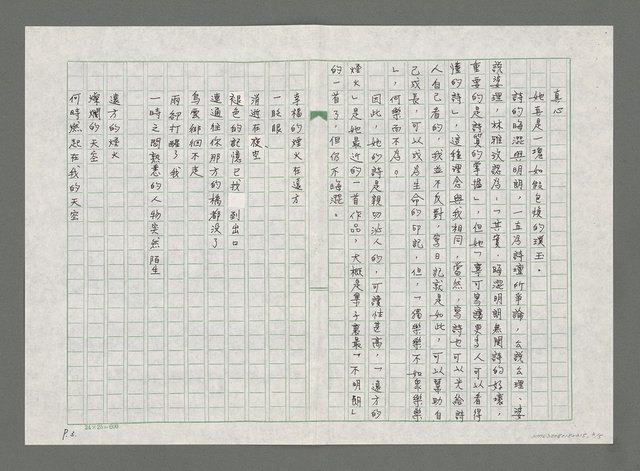 真心
她真是一塊如假包換的璞玉。
詩的晦澀與明朗，一直為詩壇所爭論，公說公理、婆
說婆理，林雅玫認為：「其實，晦澀明朗無關詩的好壞，
重要的是詩質的掌握」，但她「寧可寫讓更多人可以看得
懂的詩」，這種理念與我相同，當然，寫詩也可以光給詩
人自己看的，我並不反對，寫日記就是如此，可以幫助自
己成長，可以成為生命的印記，但，「獨樂樂不如眾樂樂
」，何樂而不為。
因此，她的詩是親切沾人的，可讀性甚高，「遠方的
煙火」是她最近的一首作品，大概是集子裏最「不明朗」
的一首了，但仍不晦澀。
幸福的煙火在遠方
一眨眼
消逝在夜空
褪色的記憶已找 到出口
連通往你那方的橋都沒了
烏雲徘徊不走
雨卻打醒了我
一時之間熟悉的人物突然陌生
遠方的煙火
燦爛的天空
何時燃起在我的天空
24×25=600